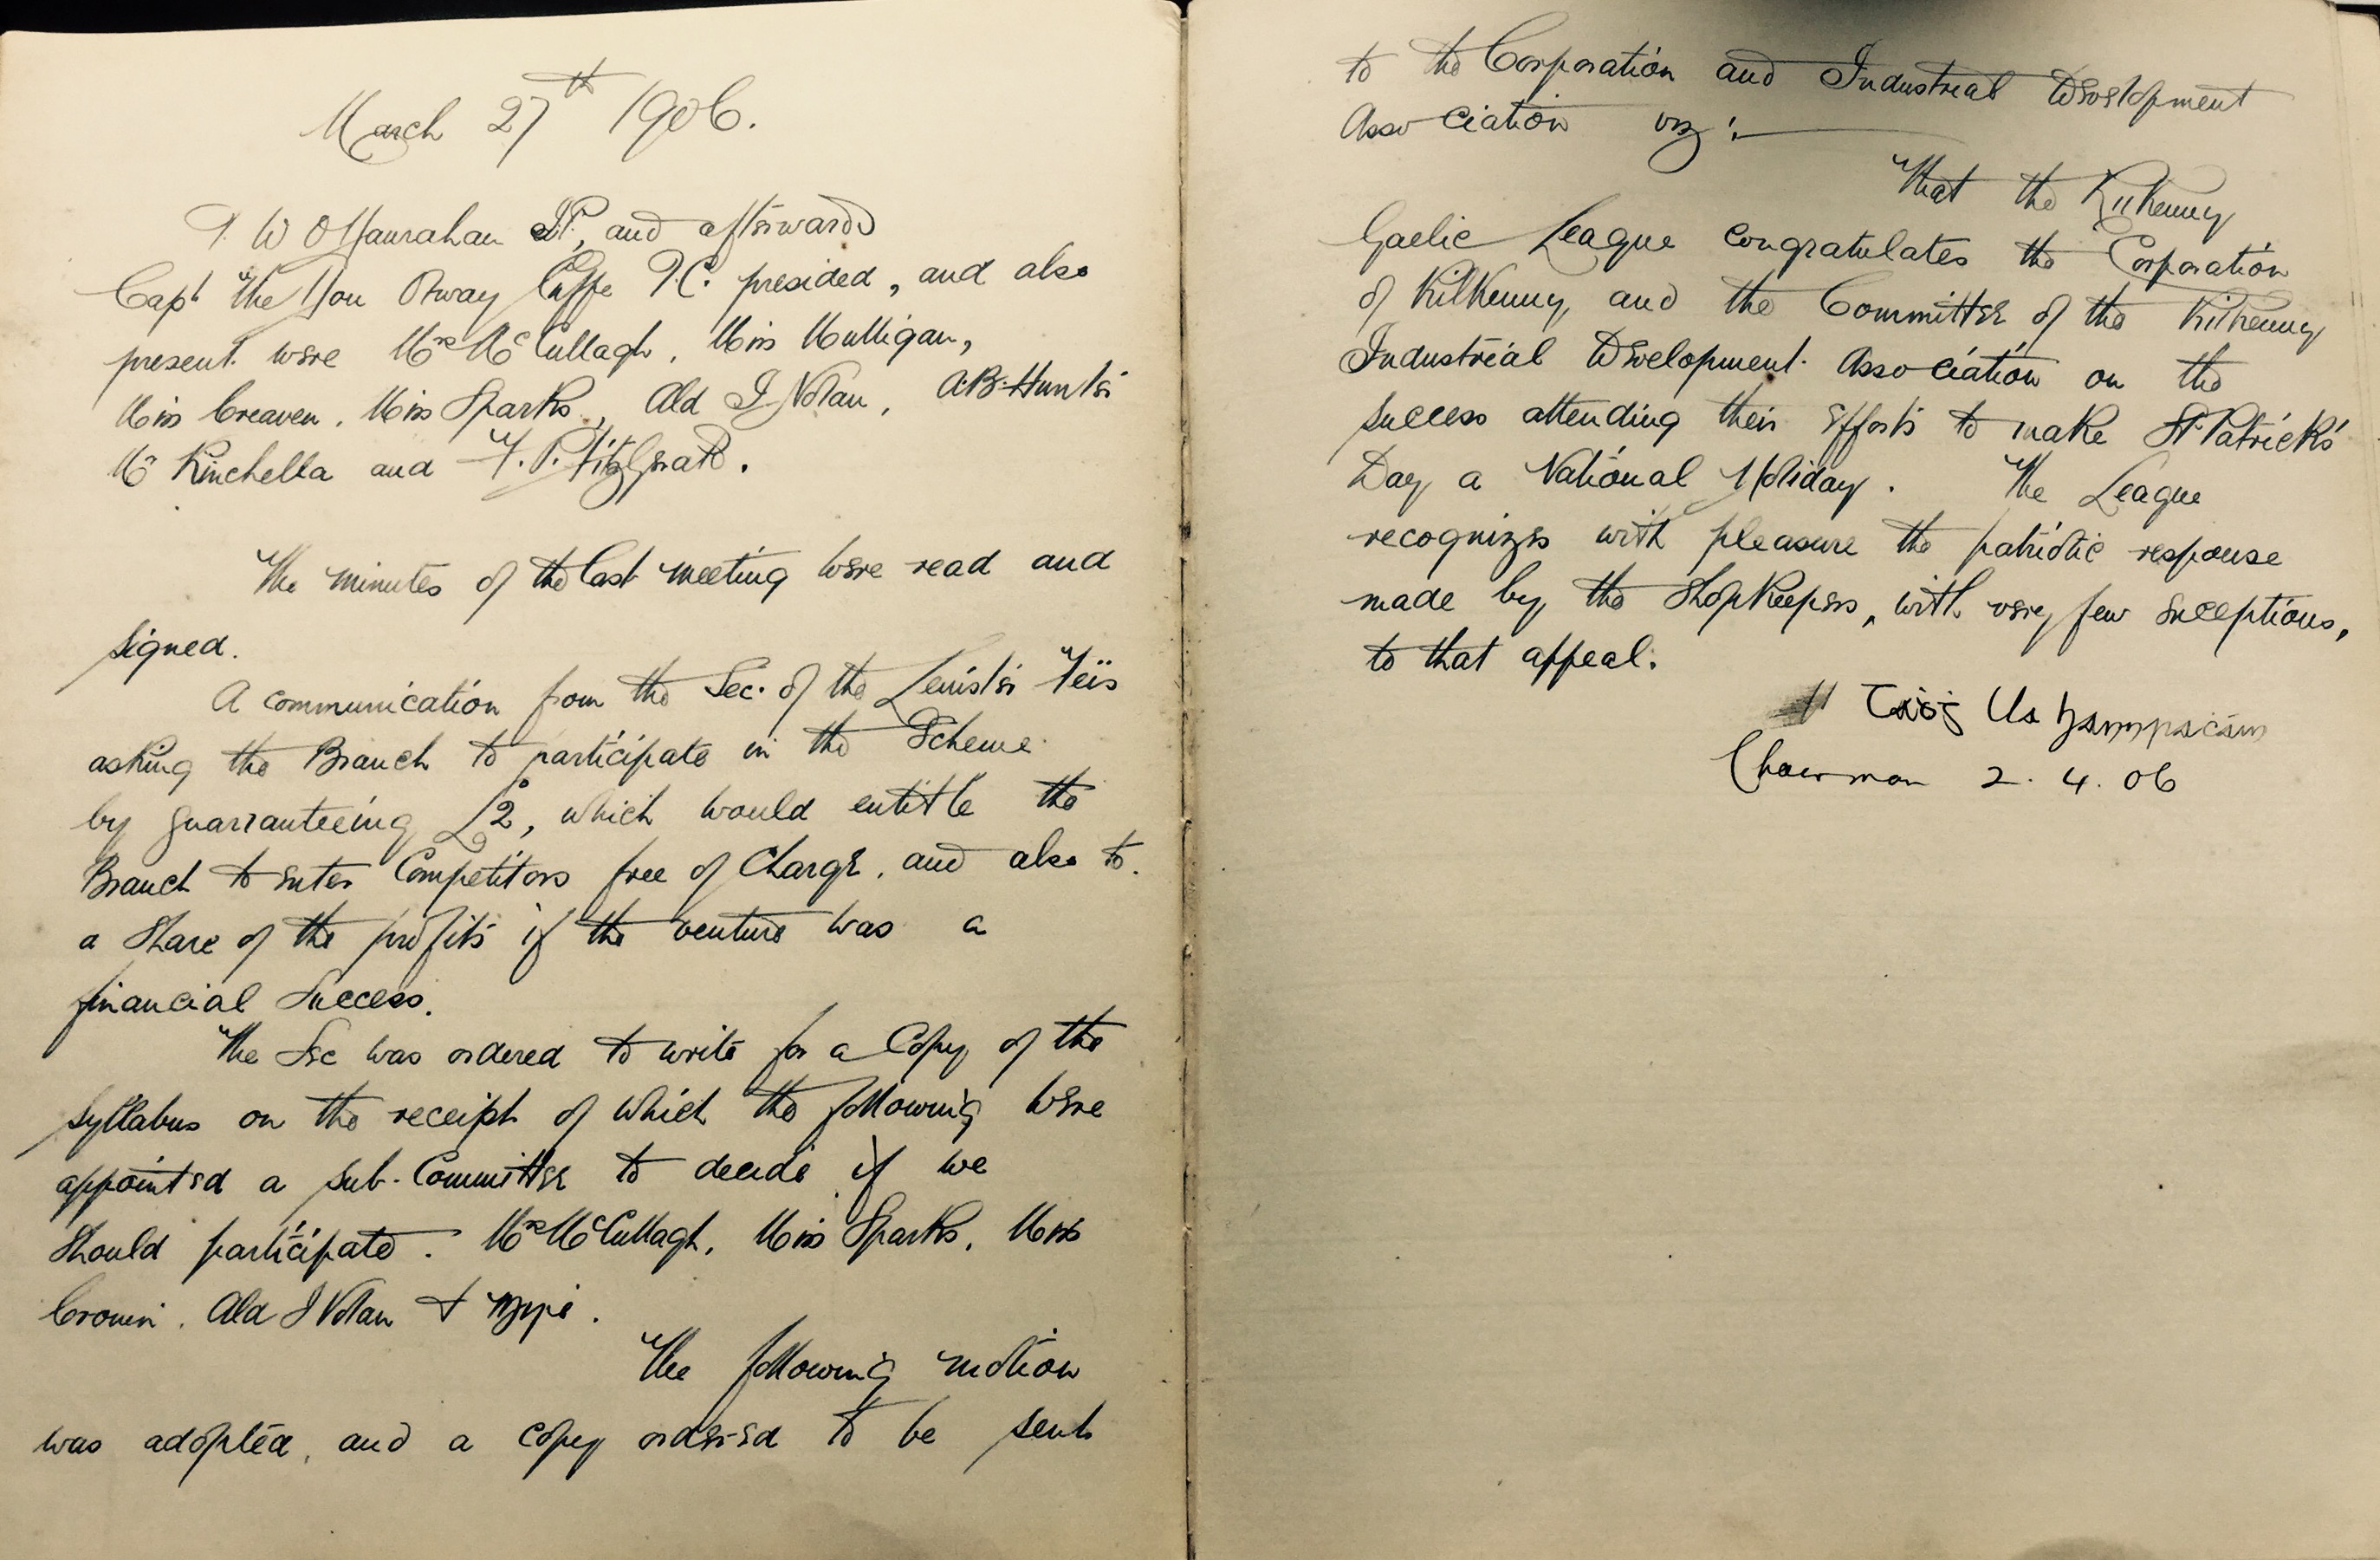 March 27th 1906.
T. W O'Hanrahan J.P., and afterwards
Capt The Hon Otway Cuffe P.C. presided, and also
present were Mrs McCullagh, Miss Mulligan,
Miss Creaven, Miss Sparks, Ald J Nolan, A.B. Hunter
Mr Kinchella and F. P. FitzGerald.
The minutes of the last meeting were read and
signed.
A communication from the Sec. of the Leinster Feis
asking the Branch to participate in the Scheme
by guarranteeing £2, which would entitle the
Branch to enter Competitors free of Charge, and also to
a Share of the profits if the venture was a
financial Success.
The Sec was ordered to write for a Copy of the
Syllabus on the receipt of which the following were
appointed a Sub-Committee to decide if we
should participate. Mrs McCullagh, Miss Sparks, Miss
Cronin, Ald J Nolan +
The following motion
was adopted, and a copy ordered to be sent
to the Corporation and Industrial Development
Association viz:—
That the Kilkenny
Gaelic League congratulates the Corporation
of Kilkenny, and the Committee of the Kilkenny
Industrial Development Association on the
success attending their efforts to make St Patrick's
Day a National Holiday. The League
recognizes with pleasure the patriotic response
made by the Shopkeepers, with very few exceptions,
to that appeal.
Tadg Ua
Chairman 2. 4. 06